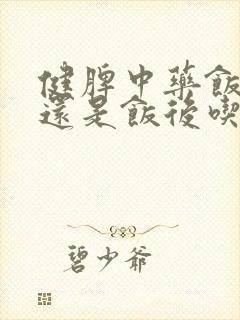 健脾中藥飯
還是飯後喫
碧少爺